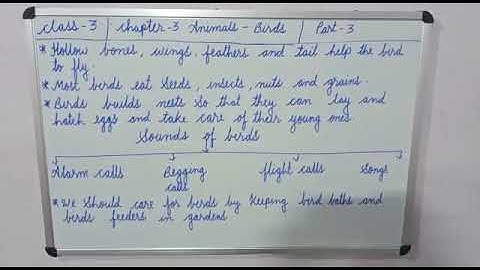 class-3 chapter-3 Animals - Birds Part-3
* Hollow bones, wings, feathers and tail help the bird
to fly.
* Most birds eat seeds, insects, nuts and grains.
* Birds builds nests so that they can lay and
hatch eggs and take care of their young ones
Sounds of birds
Alarm calls Begging flight calls Songs
calls
* We should care for birds by keeping bird baths and
birds feeders in gardens